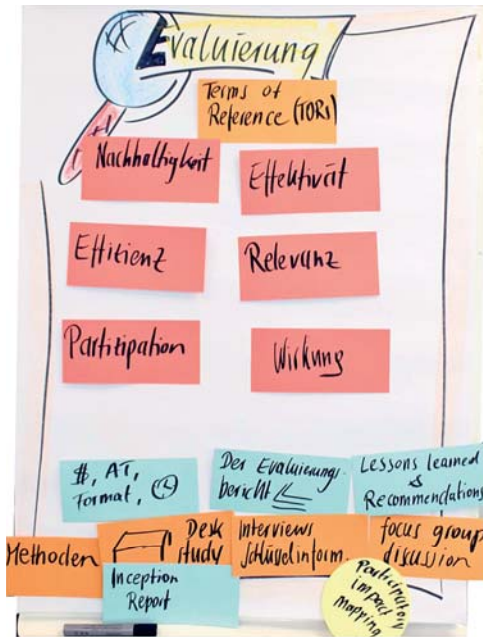 Evaluierung
Terms of
Reference (TORs)
Nachhaltigkeit
Effektivät
Effizienz
Relevanz
Partizipation
Wirkung
$, AT,
Format,
Der Evaluierungs-
bericht
Lessons learned
&
Recommendations
Methoden
Desk
study
Interviews
Schlüsselinform.
focus group
discussion
Inception
Report
Participatory
impact
Mapping